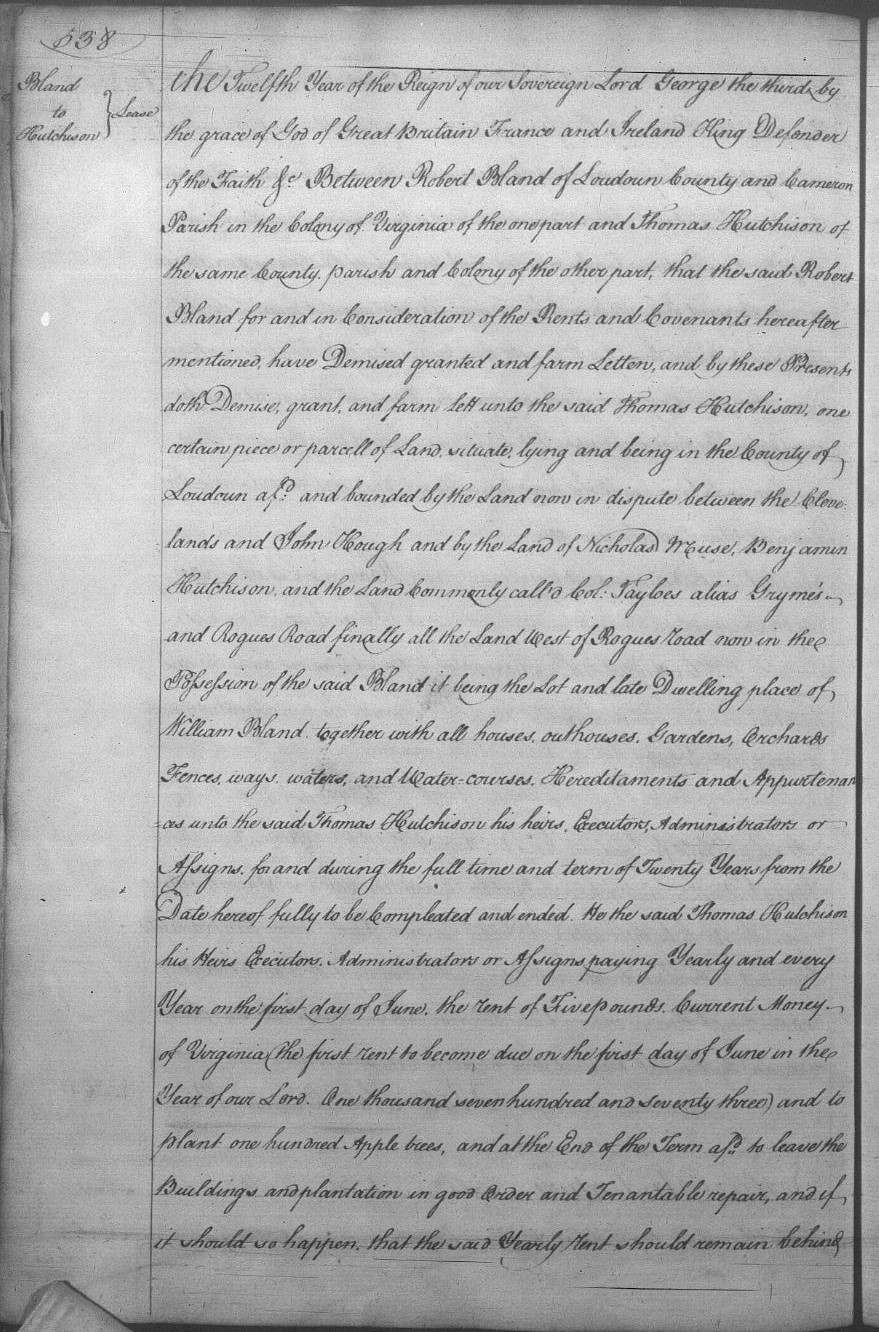 538
Bland
to
Hutchison
Lease
the Twelfth Year of the Reign of our Sovereign Lord George the third by
the grace of God of Great Britain France and Ireland King Defender
of the Faith &c Between Robert Bland of Loudoun County and Cameron
Parish in the Colony of Virginia of the one part and Thomas Hutchison of
the same County, parish and Colony of the other part, that the said Robert
Bland for and in Consideration of the Rents and Covenants hereafter
mentioned, have Demised granted and farm Letten, and by these Presents
doth Demise, grant, and farm Lett unto the said Thomas Hutchison, one
certain piece or parcell of Land, situate, lying and being in the County of
Loudoun afd. and bounded by the Land now in dispute between the Cleve-
lands and John Hough and by the Land of Nicholas Muse, Benjamin
Hutchison, and the Land Commonly call'd Col: Tayloes alias Gryme's
and Rogues Road finally all the Land West of Rogues road now in the
Possession of the said Bland it being the Lot and late Dwelling place of
William Bland. together with all houses, outhouses, Gardens, Orchards
Fences, ways, waters, and Water-courses, Hereditaments and Appurtenan
=ces unto the said Thomas Hutchison his heirs, Executors, Administrators or
Assigns, for and during the full time and term of Twenty Years from the
Date hereof fully to be Compleated and ended. He the said Thomas Hutchison
his Heirs Executors, Administrators or Assigns paying Yearly and every
Year on the first day of June, the rent of Five pounds, Current Money
of Virginia (the first rent to become due on the first day of June in the
Year of our Lord. One thousand seven hundred and seventy three) and to
plant one hundred Apple trees, and at the End of the Term afd. to leave the
Buildings and plantation in good Order and Tenantable repair, and if
it should so happen, that the said Yearly rent should remain behind